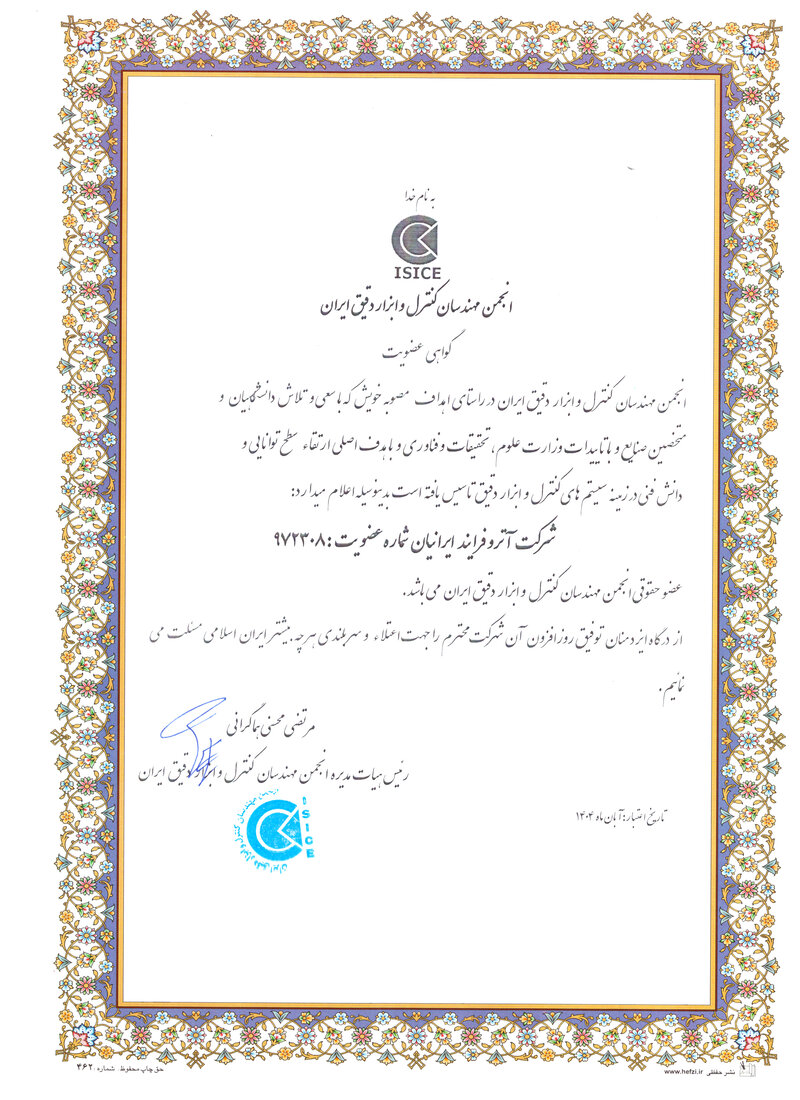 به نام خدا
ISICE
انجمن مهندسان کنترل و ابزار دقیق ایران
گواهی عضویت
انجمن مهندسان کنترل و ابزار دقیق ایران در راستای اهداف مصوبه خویش که با سعی و تلاش دانشگاهیان و
متخصصین صنایع و با تاییدات وزارت علوم، تحقیقات و فناوری و با هدف اصلی ارتقاء سطح توانایی و
دانش فنی در زمینه سیستم های کنترل و ابزار دقیق تاسیس یافته است بدینوسیله اعلام میدارد:
شرکت آترو فرایند ایرانیان شماره عضویت : ۹۷۲۳۰۸
عضو حقوقی انجمن مهندسان کنترل و ابزار دقیق ایران می باشد.
از درگاه ایزدمنان توفیق روزافزون آن شرکت محترم را جهت اعتلاء و سربلندی هرچه بیشتر ایران اسلامی مسئلت می
نمائیم.
مرتضی محسنی هماگرانی
رئیس هیات مدیره انجمن مهندسان کنترل و ابزار دقیق ایران
انجمن مهندسان کنترل و ابزار دقیق ایران
ISICE
تاریخ اعتبار: آبان ماه ۱۴۰۴
نشر حفظی www.hefzi.ir
حق چاپ محفوظ شماره ۴۶۲۰